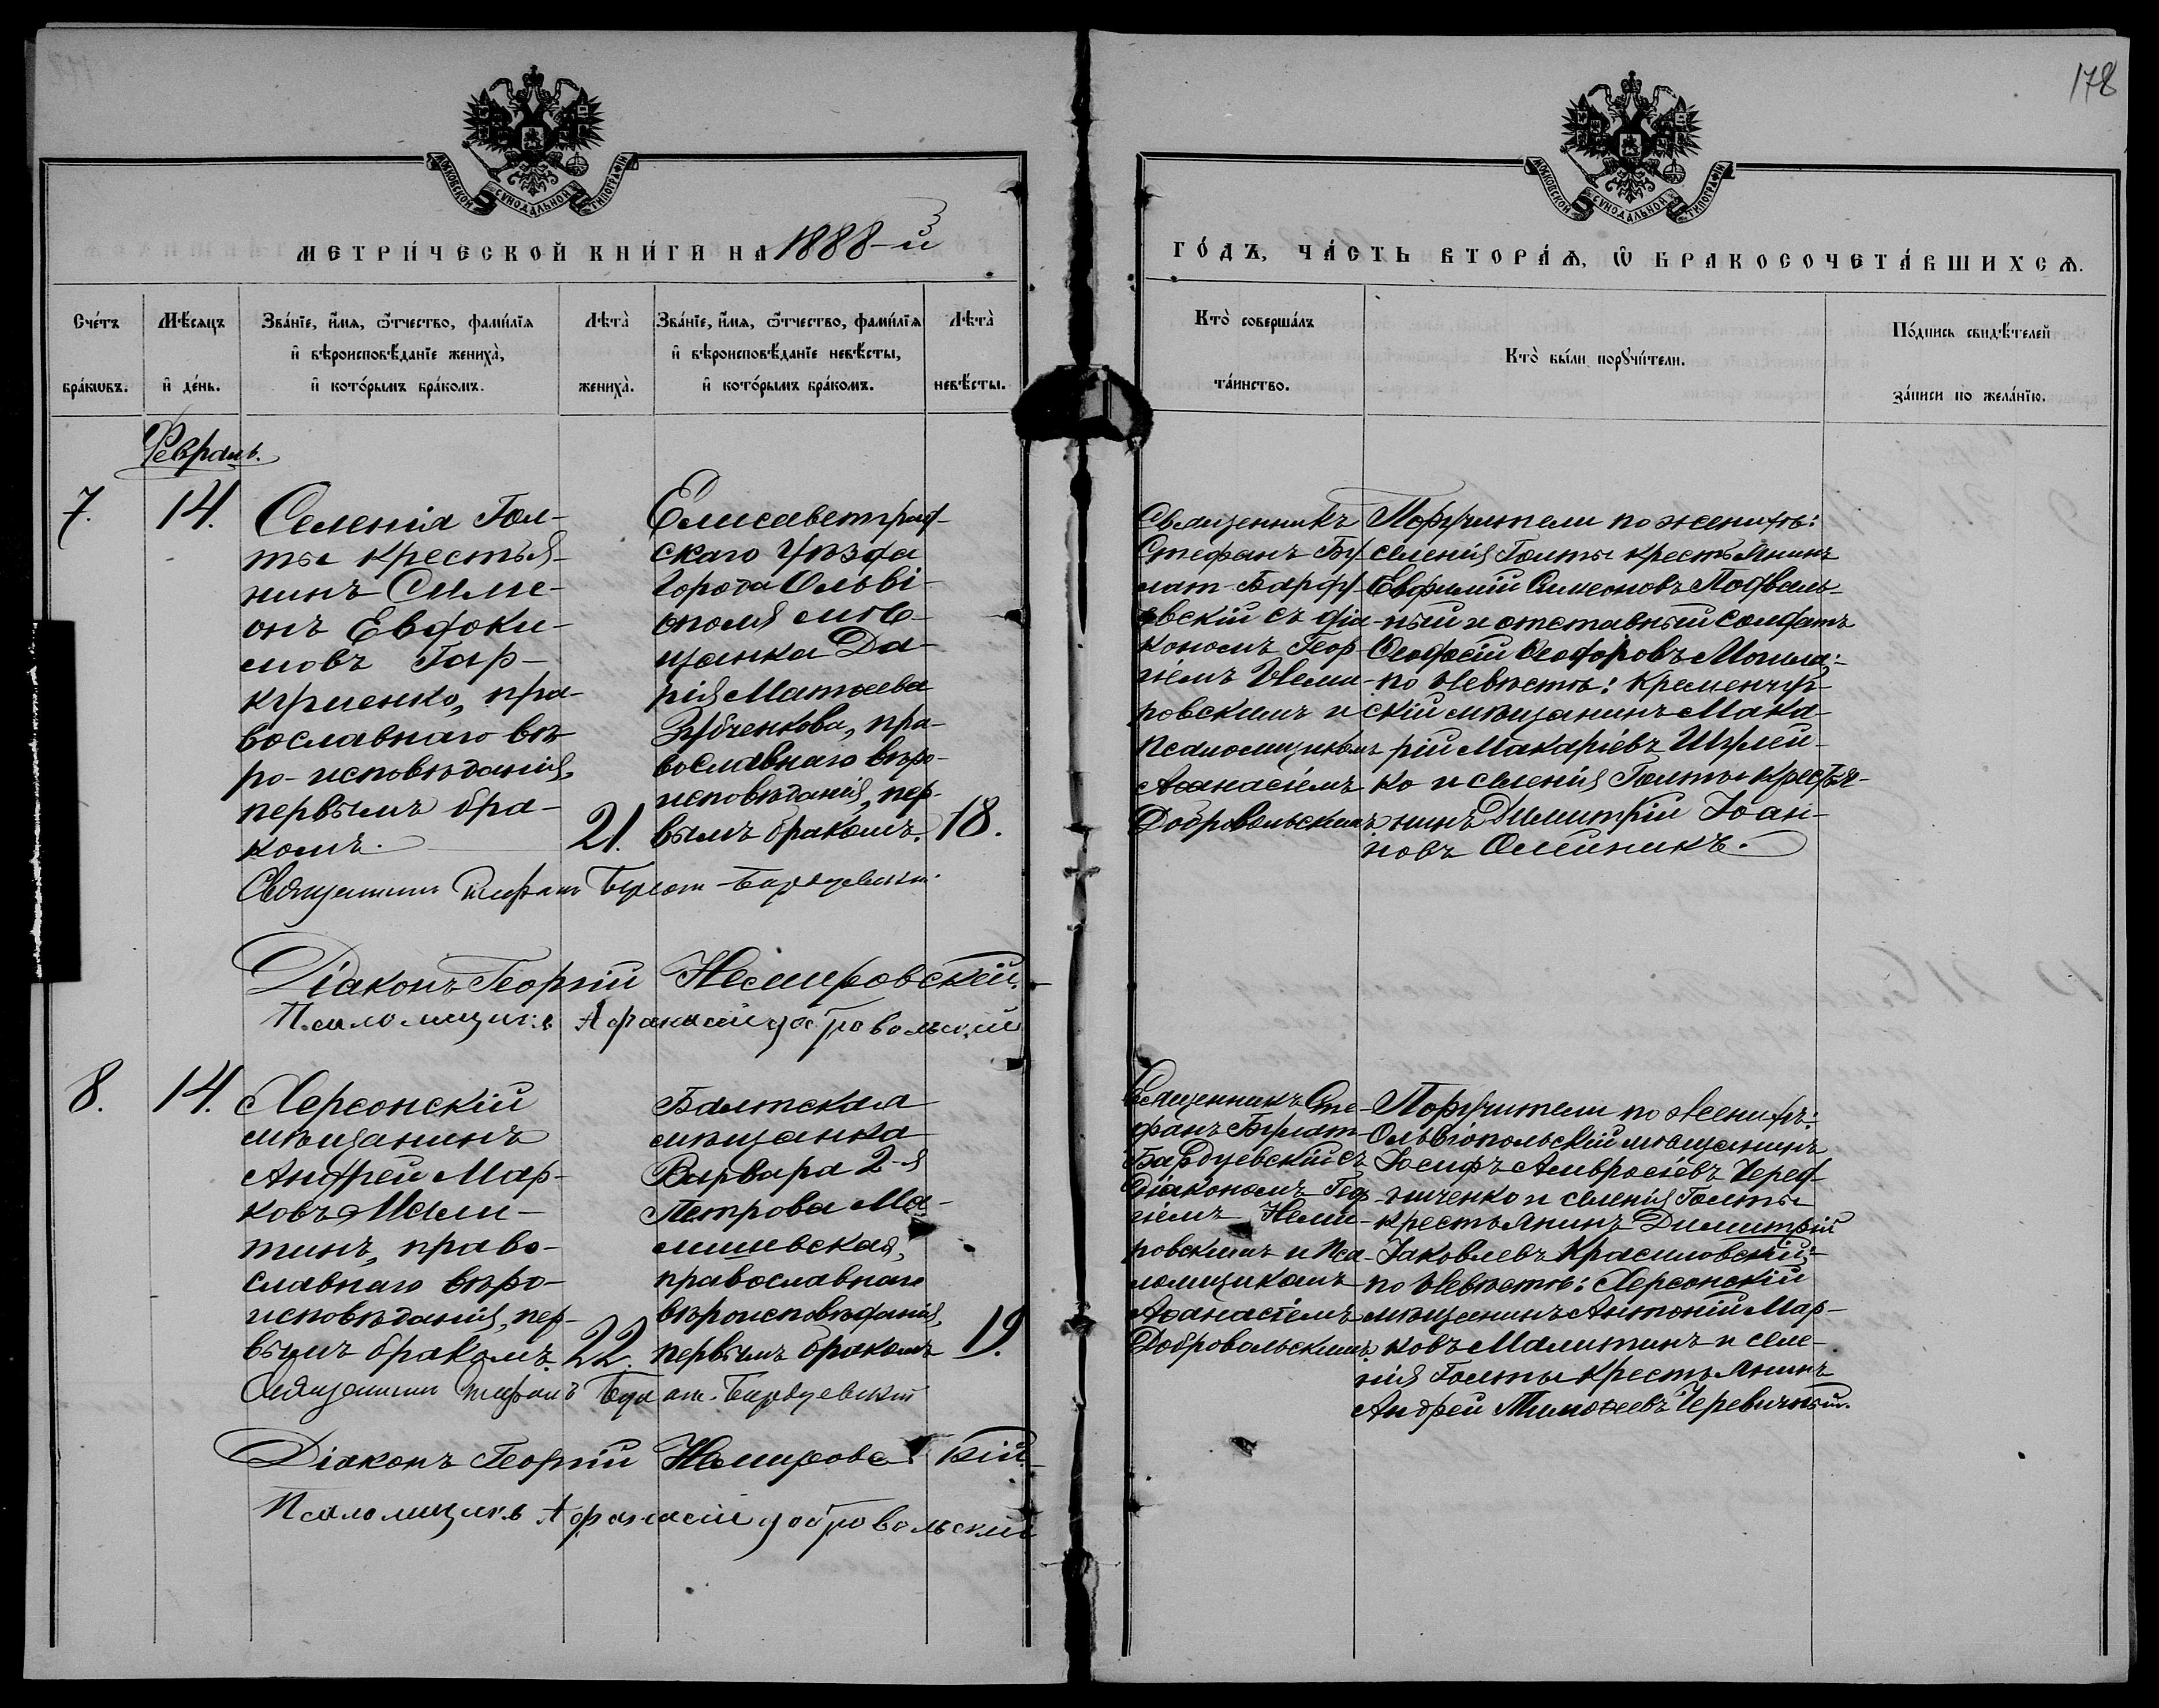 178
МОСКОВСКОЙ СУНОДАЛЬНОЙ ТИПОГРАФІИ
МОСКОВСКОЙ СУНОДАЛЬНОЙ ТИПОГРАФІИ
МЕТРИ́ЧЕСКОЙ КНИ́ГИ НА 1888-й
ГО́ДЪ, ЧА́СТЬ ВТОРА́Ѧ, Ѽ БРАКОСОЧЕТА́ВШИХСѦ.
Сче́тъ
бра́кѡвъ.
Мѣ́сяцъ
и҆ де́нь.
Зва́нїе, и҆́мя, ѻ҆́тчество, фамі́лїя
и҆ вѣроисповѣ́данїе жениха̀,
и҆ кото́рымъ бра́комъ.
Лѣта̀
жениха̀.
Зва́нїе, и҆́мя, ѻ҆́тчество, фамі́лїя
и҆ вѣроисповѣ́данїе невѣ́сты,
и҆ кото́рымъ бра́комъ.
Лѣта̀
невѣ́сты.
Кто̀ соверша́лъ
та́инство.
Кто̀ бы́ли порꙋчи́тели.
По́дпись свидѣ́телей
за́писи по жела́нїю.
Февраль.
7.
14.
Селенія Гол-
ты крестья-
нинъ Симе-
онъ Евдоки-
мовъ Гар-
куменко, пра-
вославнаго вѣ-
ро-исповѣданія,
первымъ бра-
комъ.
21.
Елисаветград-
скаго уѣзда
города Ольві-
ополя мѣ-
щанка Да-
рія Матѳеева
Зубченкова, пра-
вославнаго вѣро-
исповѣданія, пер-
вымъ бракомъ.
18.
Священникъ
Стефанъ Бу-
лат-Барду-
евскій съ діа-
кономъ Геор-
гіемъ Неми-
ровскимъ и
псаломщикомъ
Аѳанасіемъ
Добровольскимъ
Поручители по женихѣ:
селенія Голты крестьянинъ
Евфимій Симеоновъ Подваль-
ный и отставный солдатъ
Ѳеодосій Ѳеодоровъ Могила;
по невѣстѣ: Кременчуг-
скій мѣщанинъ Мака-
рій Макаріевъ Шулей-
ко и селенія Голты крестья-
нинъ Димитрій Іоан-
новъ Олійникъ.
Священникъ Стефанъ Булат-Бардуевскій
Діаконъ Георгій Немировскій.
Псаломщикъ Афанасій Добровольскій
8.
14.
Херсонскій
мѣщанинъ
Андрей Мар-
ковъ Мали-
тинъ, право-
славнаго вѣро-
исповѣданія, пер-
вымъ бракомъ.
22.
Балтская
мѣщанка
Варвара 2-я
Петрова Ма-
лишевская,
православнаго
вѣроисповѣданія,
первымъ бракомъ
19.
Священникъ Сте-
фанъ Булат-
Бардуевскій съ
діакономъ Геор-
гіемъ Неми-
ровскимъ и Пса-
ломщикомъ
Аѳанасіемъ
Добровольскимъ
Поручители по женихѣ:
Ольвіопольскій мѣщанинъ
Іосифъ Амвросіевъ Черед-
ниченко и селенія Голты
крестьянинъ Димитрій
Іаковлевъ Красиловскій;
по невѣстѣ: Херсонскій
мѣщанинъ Антоній Мар-
ковъ Малитинъ и селе-
нія Голты крестьянинъ
Андрей Тимоѳеевъ Черевичный.
Священникъ Стефанъ Булат-Бардуевскій
Діаконъ Георгій Немировскій
Псаломщикъ Афанасій Добровольскій